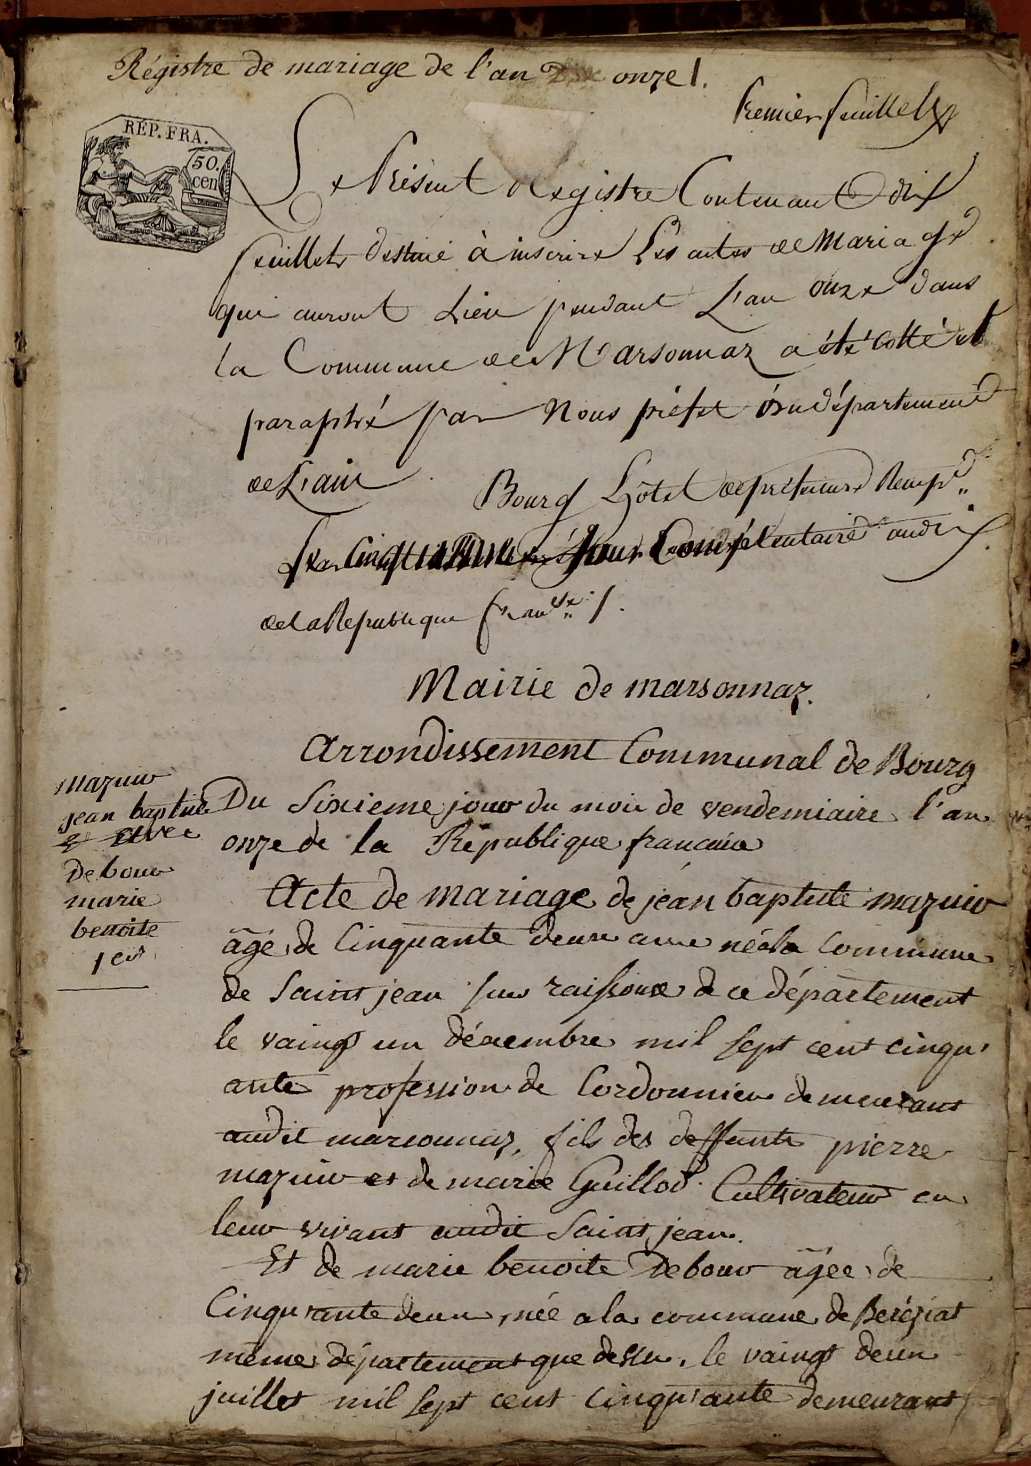 Régistre de mariage de l'an onze 1.
Premier feuillet
RÉP. FRA.
50.
cen
Le Présent Registre Contenant dix
feuillets destiné à inscrire Les actes de Mariage
qui auront Lieu pendant L'an onze dans
la Commune de Marsonnaz a été cotté et
paraphé par Nous préfet du département
de L'ain . Bourg Hôtel de préfecture
Le Cinquieme Jour Complémentaire an dix
de la Republique franse /.
Mairie de marsonnaz.
Arrondissement Communal de Bourg
mazuir
jean baptiste
et avec
Debour
marie
benoite
1er
Du Sixieme jour du mois de vendemiaire l'an
onze de la République francaise
Acte de mariage de jean baptiste mazuir
âgé de Cinquante deux ans né a la commune
de Saint jean sur raissouse de ce département
le vaingt un décembre mil sept cent cinqu'
ante profession de Cordonnier demeurant
audit marsonnaz, fils des deffunts pierre
mazuir et de marie Guillod Cultivateur en
leur vivant audit Saint jean.
Et de marie benoite Debour âgée de
Cinquante deux, née a la commune de Beréziat
même département que dessu, le vaingt deux
juillet mil sept cent cinqu'ante demeurant